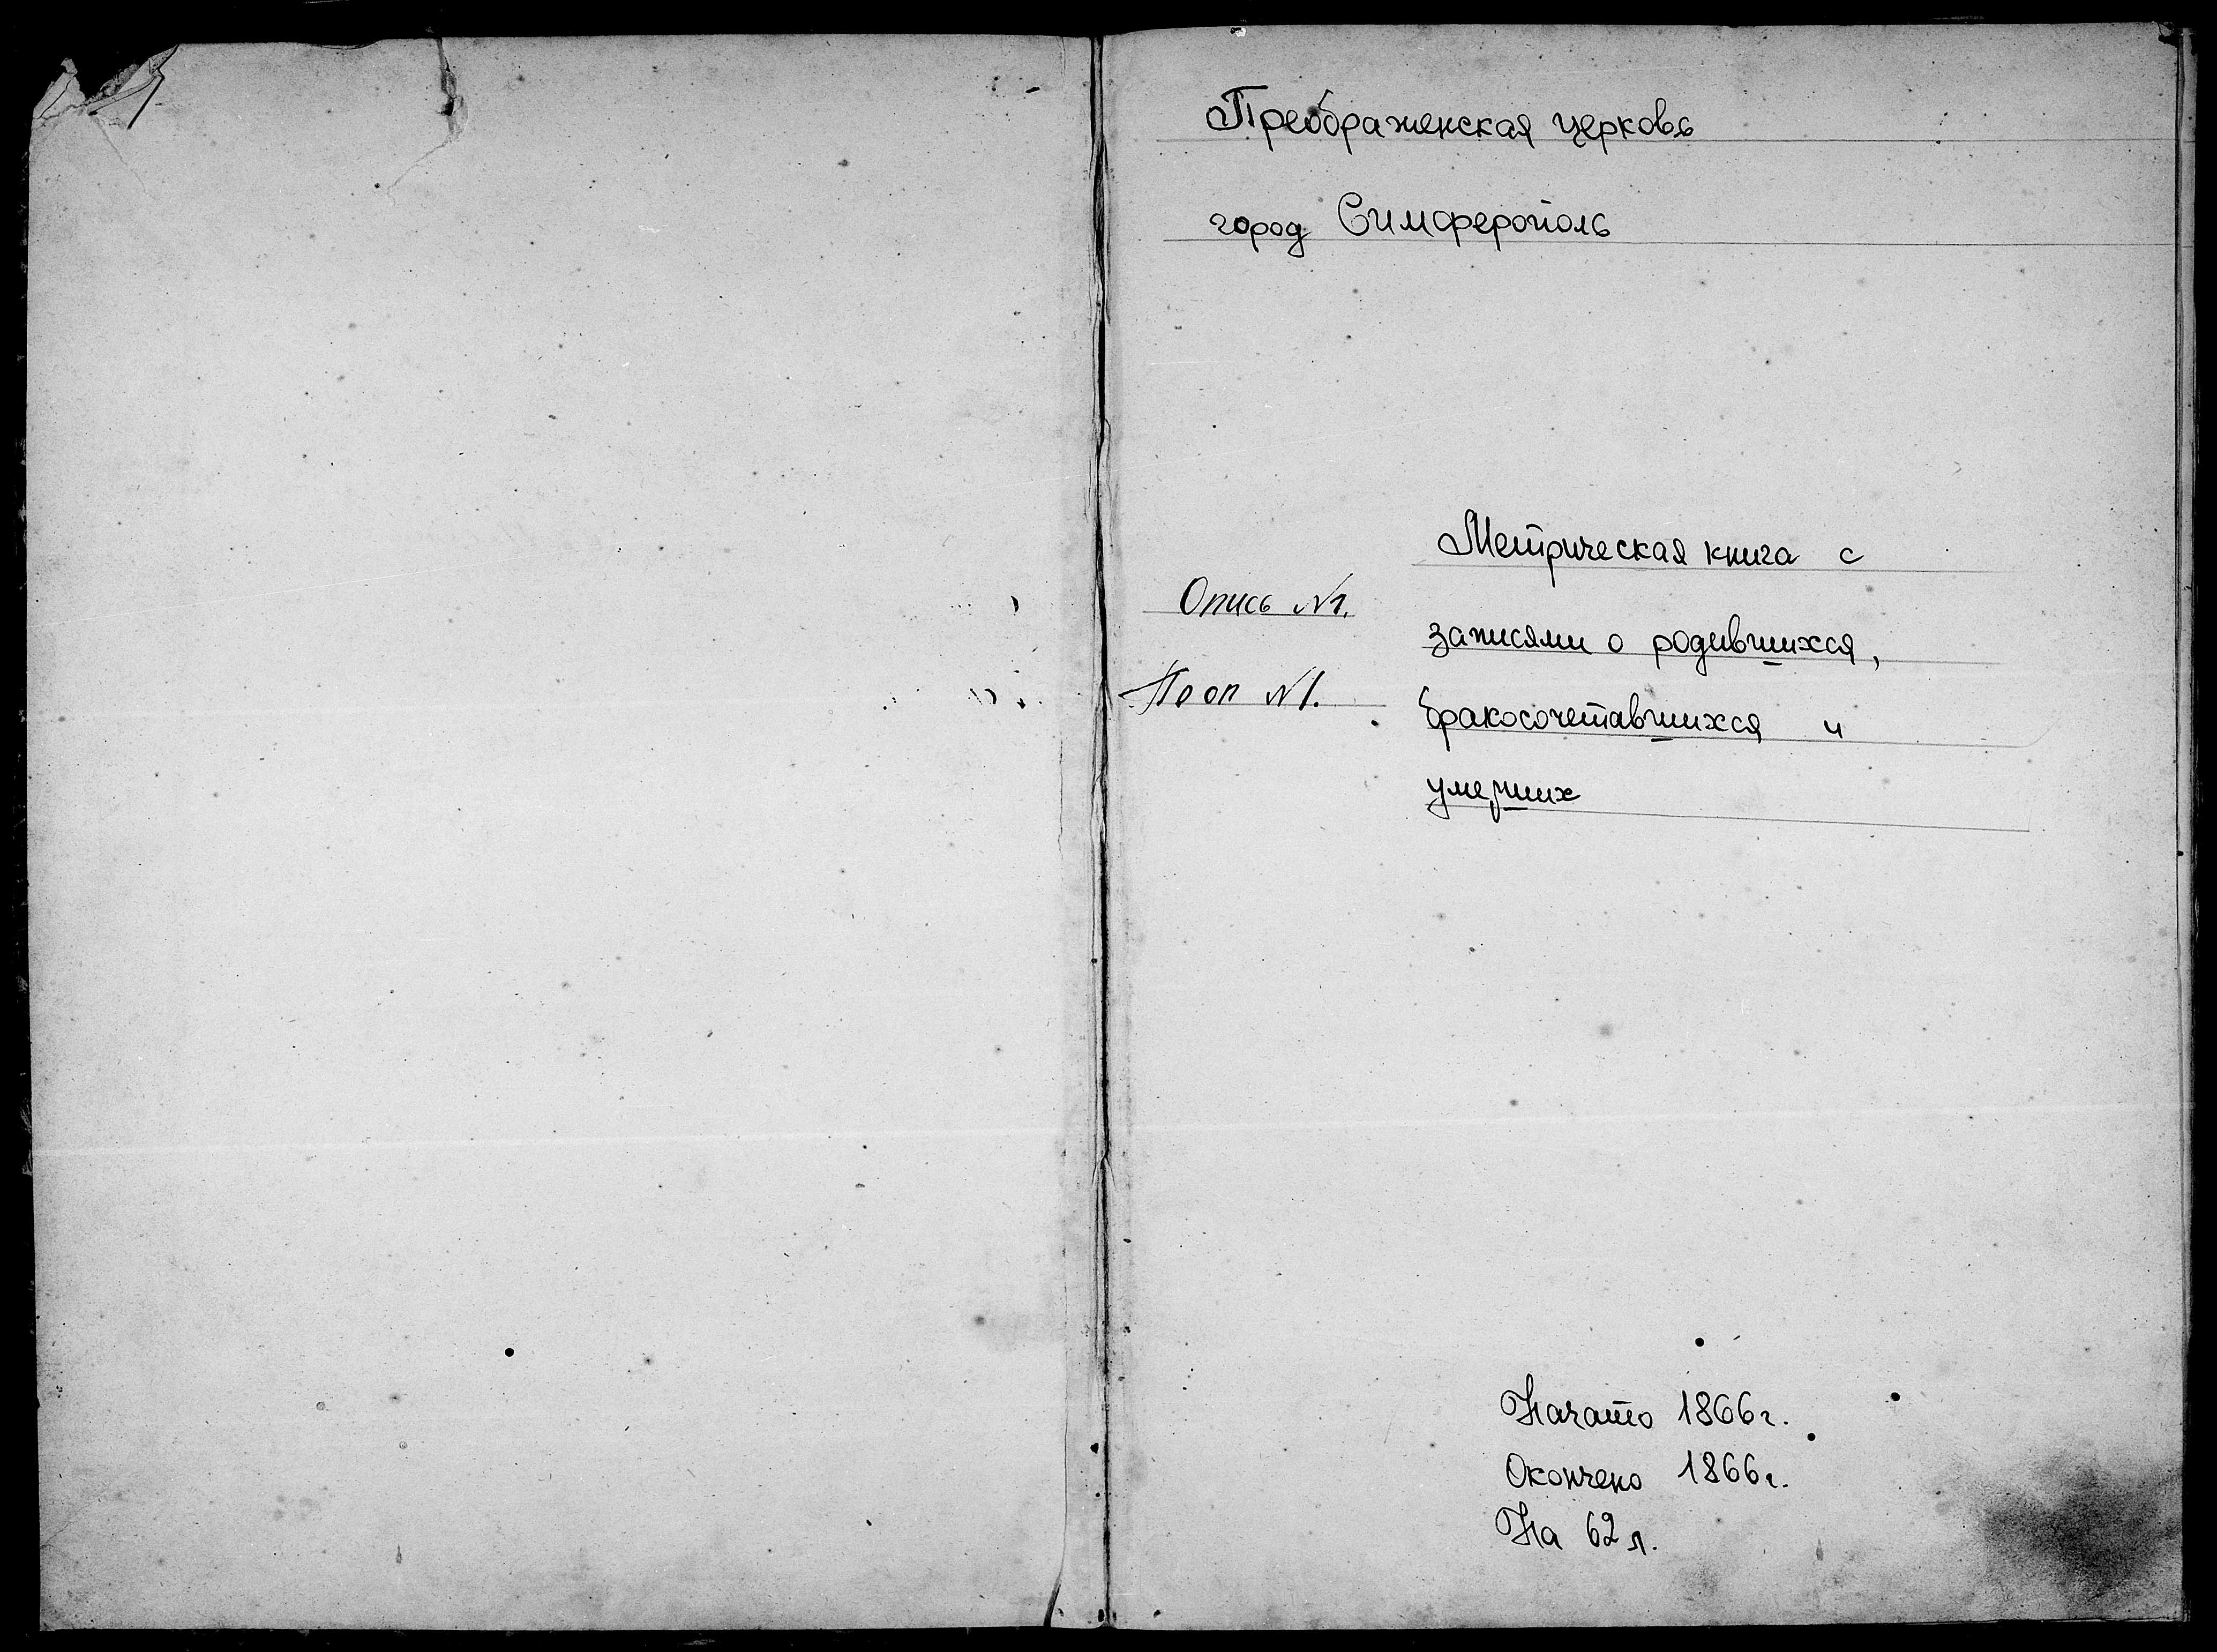 Преображенская церковь
город Симферополь
Метрическая книга с
Опись №1.
записями о родившихся,
По оп №1.
бракосочетавшихся и
умерших
Начато 1866г.
Окончено 1866г.
На 62 л.